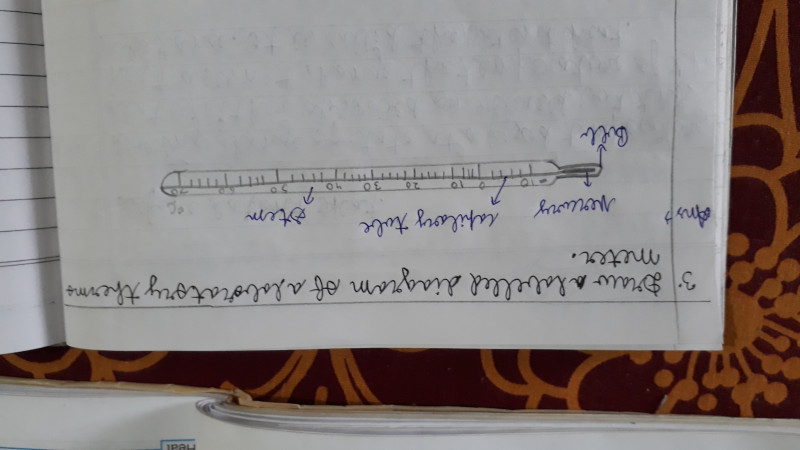 3. Draw a labelled diagram of a laboratory thermo
meter.
Ans→
Mercury
Capilary tube
Stem
°C
-10 0 10 20 30 40 50 60 70
Bulb
Real